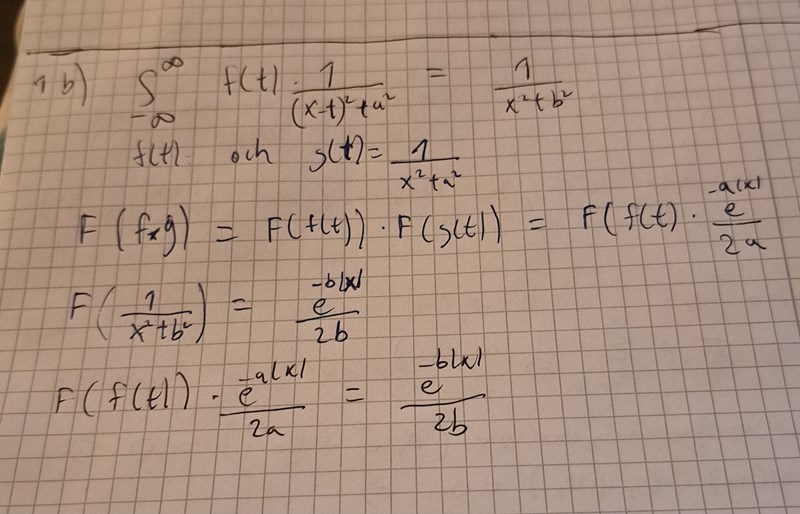 1 b) ∫_{-∞}^{∞} f(t) · 1/((x-t)²+a²) = 1/(x²+b²)
f(t) och g(t) = 1/(x²+a²)
F(f*g) = F(f(t)) · F(g(t)) = F(f(t) · e^{-a|x|}/2a
F(1/(x²+b²)) = e^{-b|x|}/2b
F(f(t)) · e^{-a|x|}/2a = e^{-b|x|}/2b